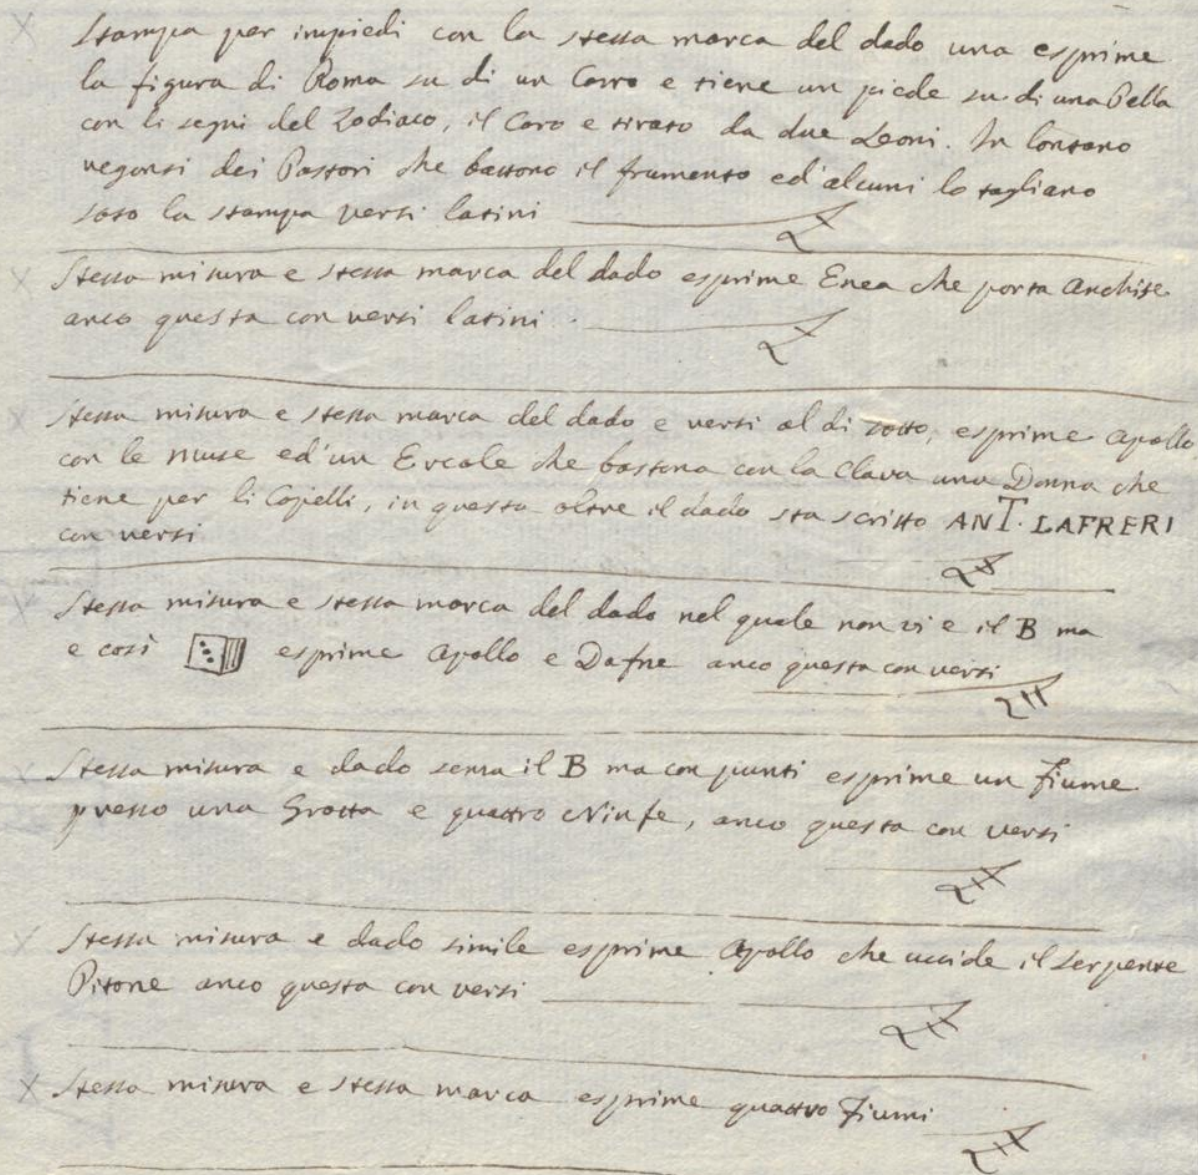 Stampa per inpiedi con la stessa marca del dado una esprime
la figura di Roma su di un Carro e tiene un piede su di una Palla
con li segni del Zodiaco, il Caro e tirato da due Leoni. In lontano
vegonsi dei Pastori che battono il frumento ed'alcuni lo tagliano
soto la stampa versi latini
Stessa misura e stessa marca del dado esprime Enea che porta Anchise
anco questa con versi latini.
Stessa misura e stessa marca del dado e versi al di sotto, esprime Apollo
con le muse ed'un Ercole che bastona con la Clava una Donna che
tiene per li Capelli, in questa oltre il dado sta scritto ANT. LAFRERI
con versi
Stessa misura e stessa marca del dado nel quale non vi e il B ma
e così esprime Apollo e Dafne anco questa con versi
Stessa misura e dado senza il B ma con punti esprime un Fiume
presso una Grotta e quattro Ninfe, anco questa con versi
Stessa misura e dado simile esprime Apollo che uccide il Serpente
Pitone anco questa con versi
Stessa misura e stessa marca esprime quattro Fiumi